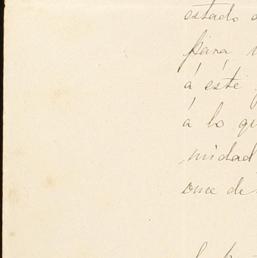 estado
para
á este
á lo qu
midad
once de